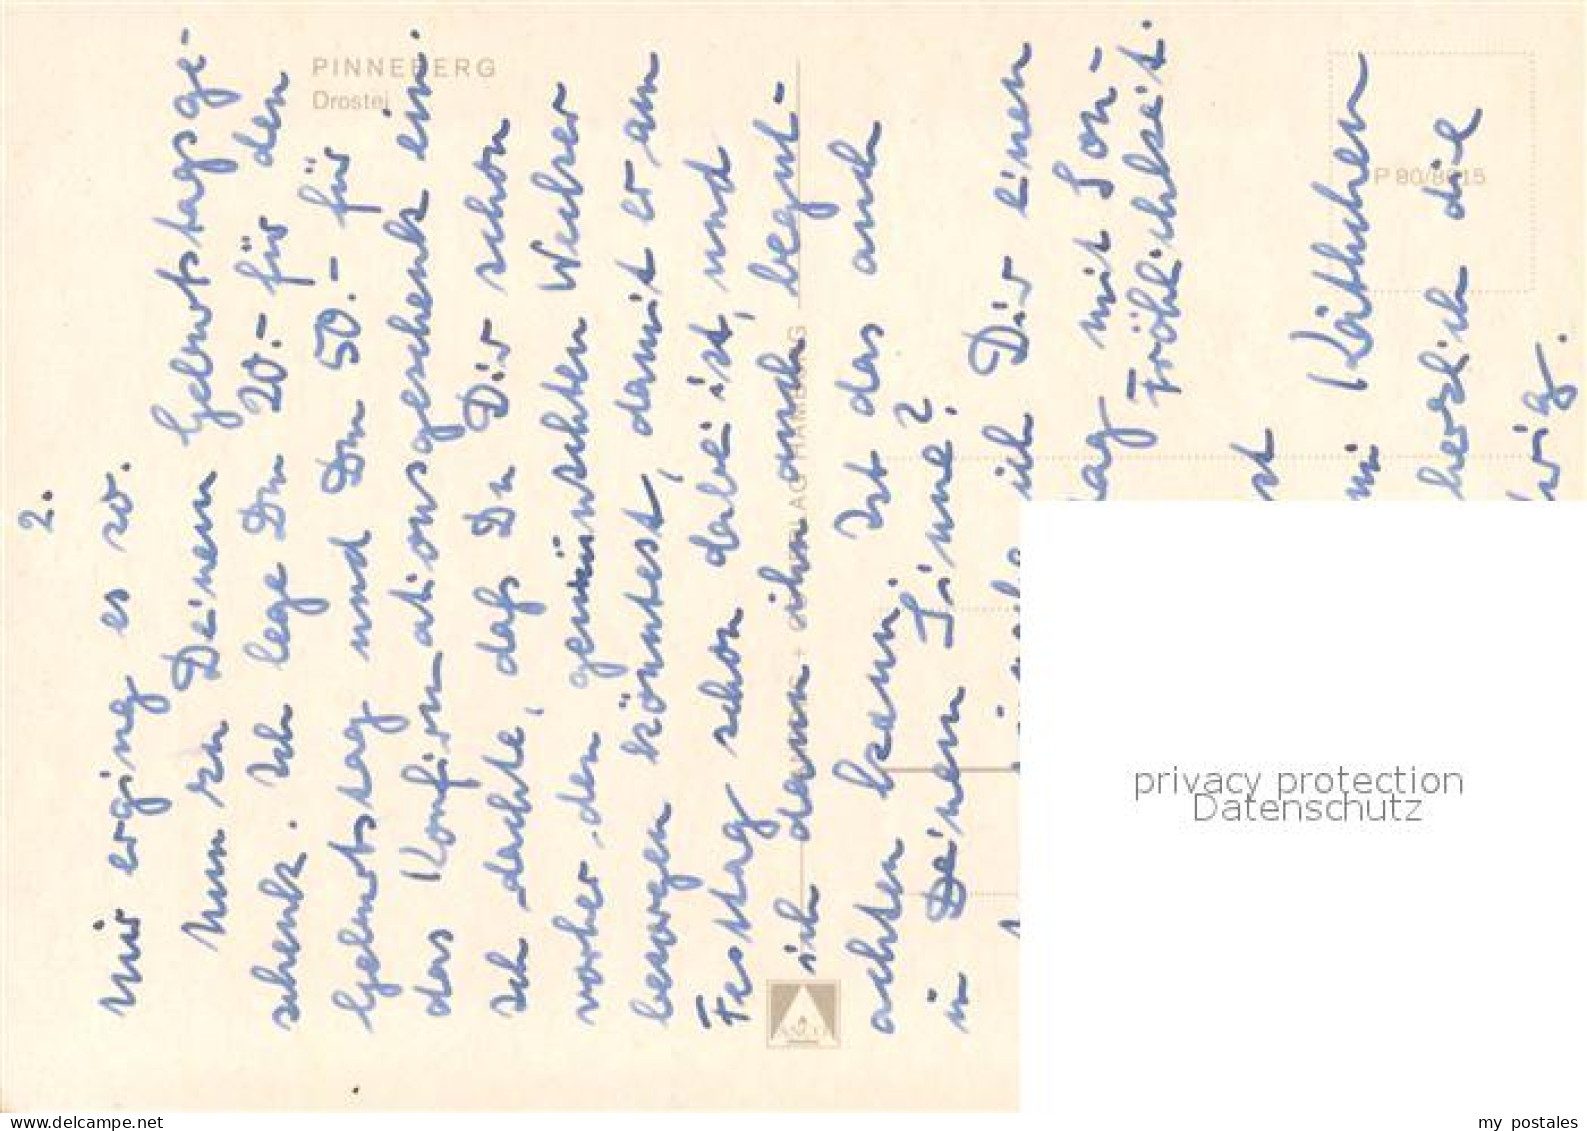 PINNEBERG
Drostei
P 80/8615
2.
mir erging es so.
Nun zu Deinem Geburtstagsge-
schenk. Ich lege Dm 20.- für den
Geburtstag und Dm 50.- für
das Konfirmationsgeschenk ein.
Ich dachte, daß Du Dir schon
vorher den gewünschten Wecker
besorgen könntest, damit er am
Festtag schon dabei ist, und
ich dann ihn auch begut-
achten kann. Ist das auch
in Deinem Sinne?
ich Dir einen
tag mit Son-
Fröhlichkeit.
Käthchen
herzlich die
VERLAG HAMBURG
ANCO
privacy protection
Datenschutz
my postales